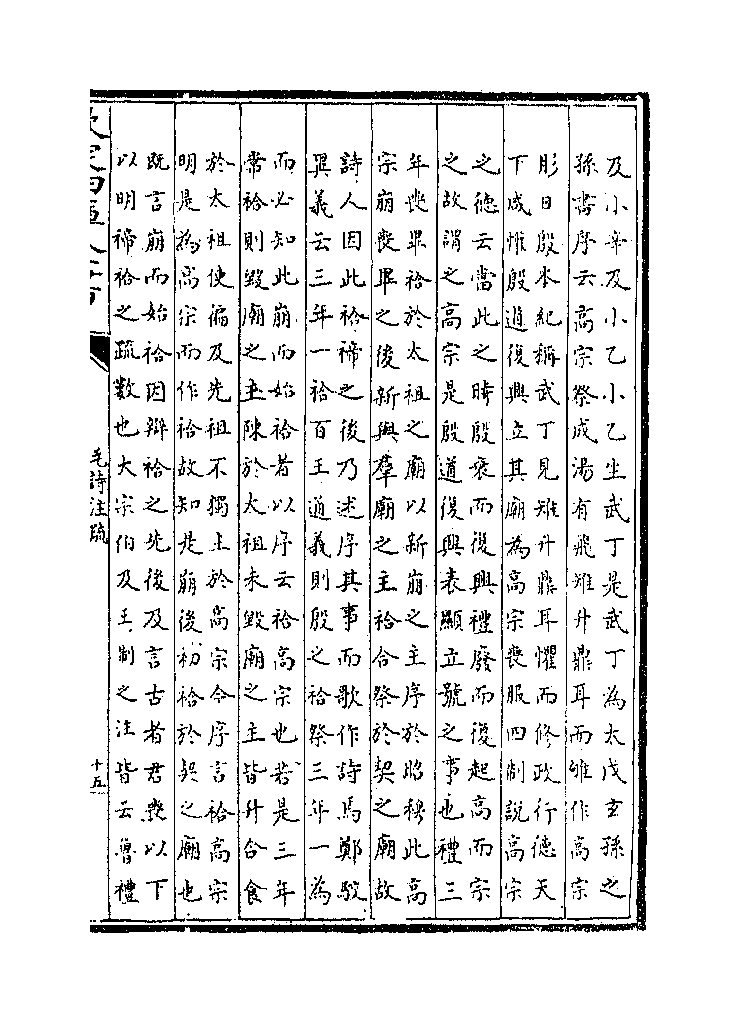 及小辛及小乙小乙生武丁是武丁為太戊玄孫之
孫書序云高宗祭成湯有飛雉升鼎耳而雊作高宗
肜日殷本紀稱武丁見雉升鼎耳懼而修政行德天
下咸惟殷道復興立其廟為高宗喪服四制說高宗
之德云當此之時殷衰而復興禮廢而復起高而宗
之故謂之高宗是殷道復興表顯立號之事也禮三
年喪畢祫於太祖之廟以新崩之主序於昭穆此高
宗崩喪畢之後新與羣廟之主祫合祭於契之廟故
詩人因此祫禘之後乃述序其事而歌作詩焉鄭駮
異義云三年一祫百王通義則殷之祫祭三年一為
而必知此崩而始祫者以序云祫高宗也若是三年
常祫則毀廟之主陳於太祖未毀廟之主皆升合食
於太祖使徧及先祖不獨主於高宗今序言祫高宗
明是為高宗而作祫故知是崩後初祫於契之廟也
既言崩而始祫因辯祫之先後及言古者君喪以下
以明禘祫之疏數也大宗伯及王制之注皆云魯禮
毛詩注疏
十五